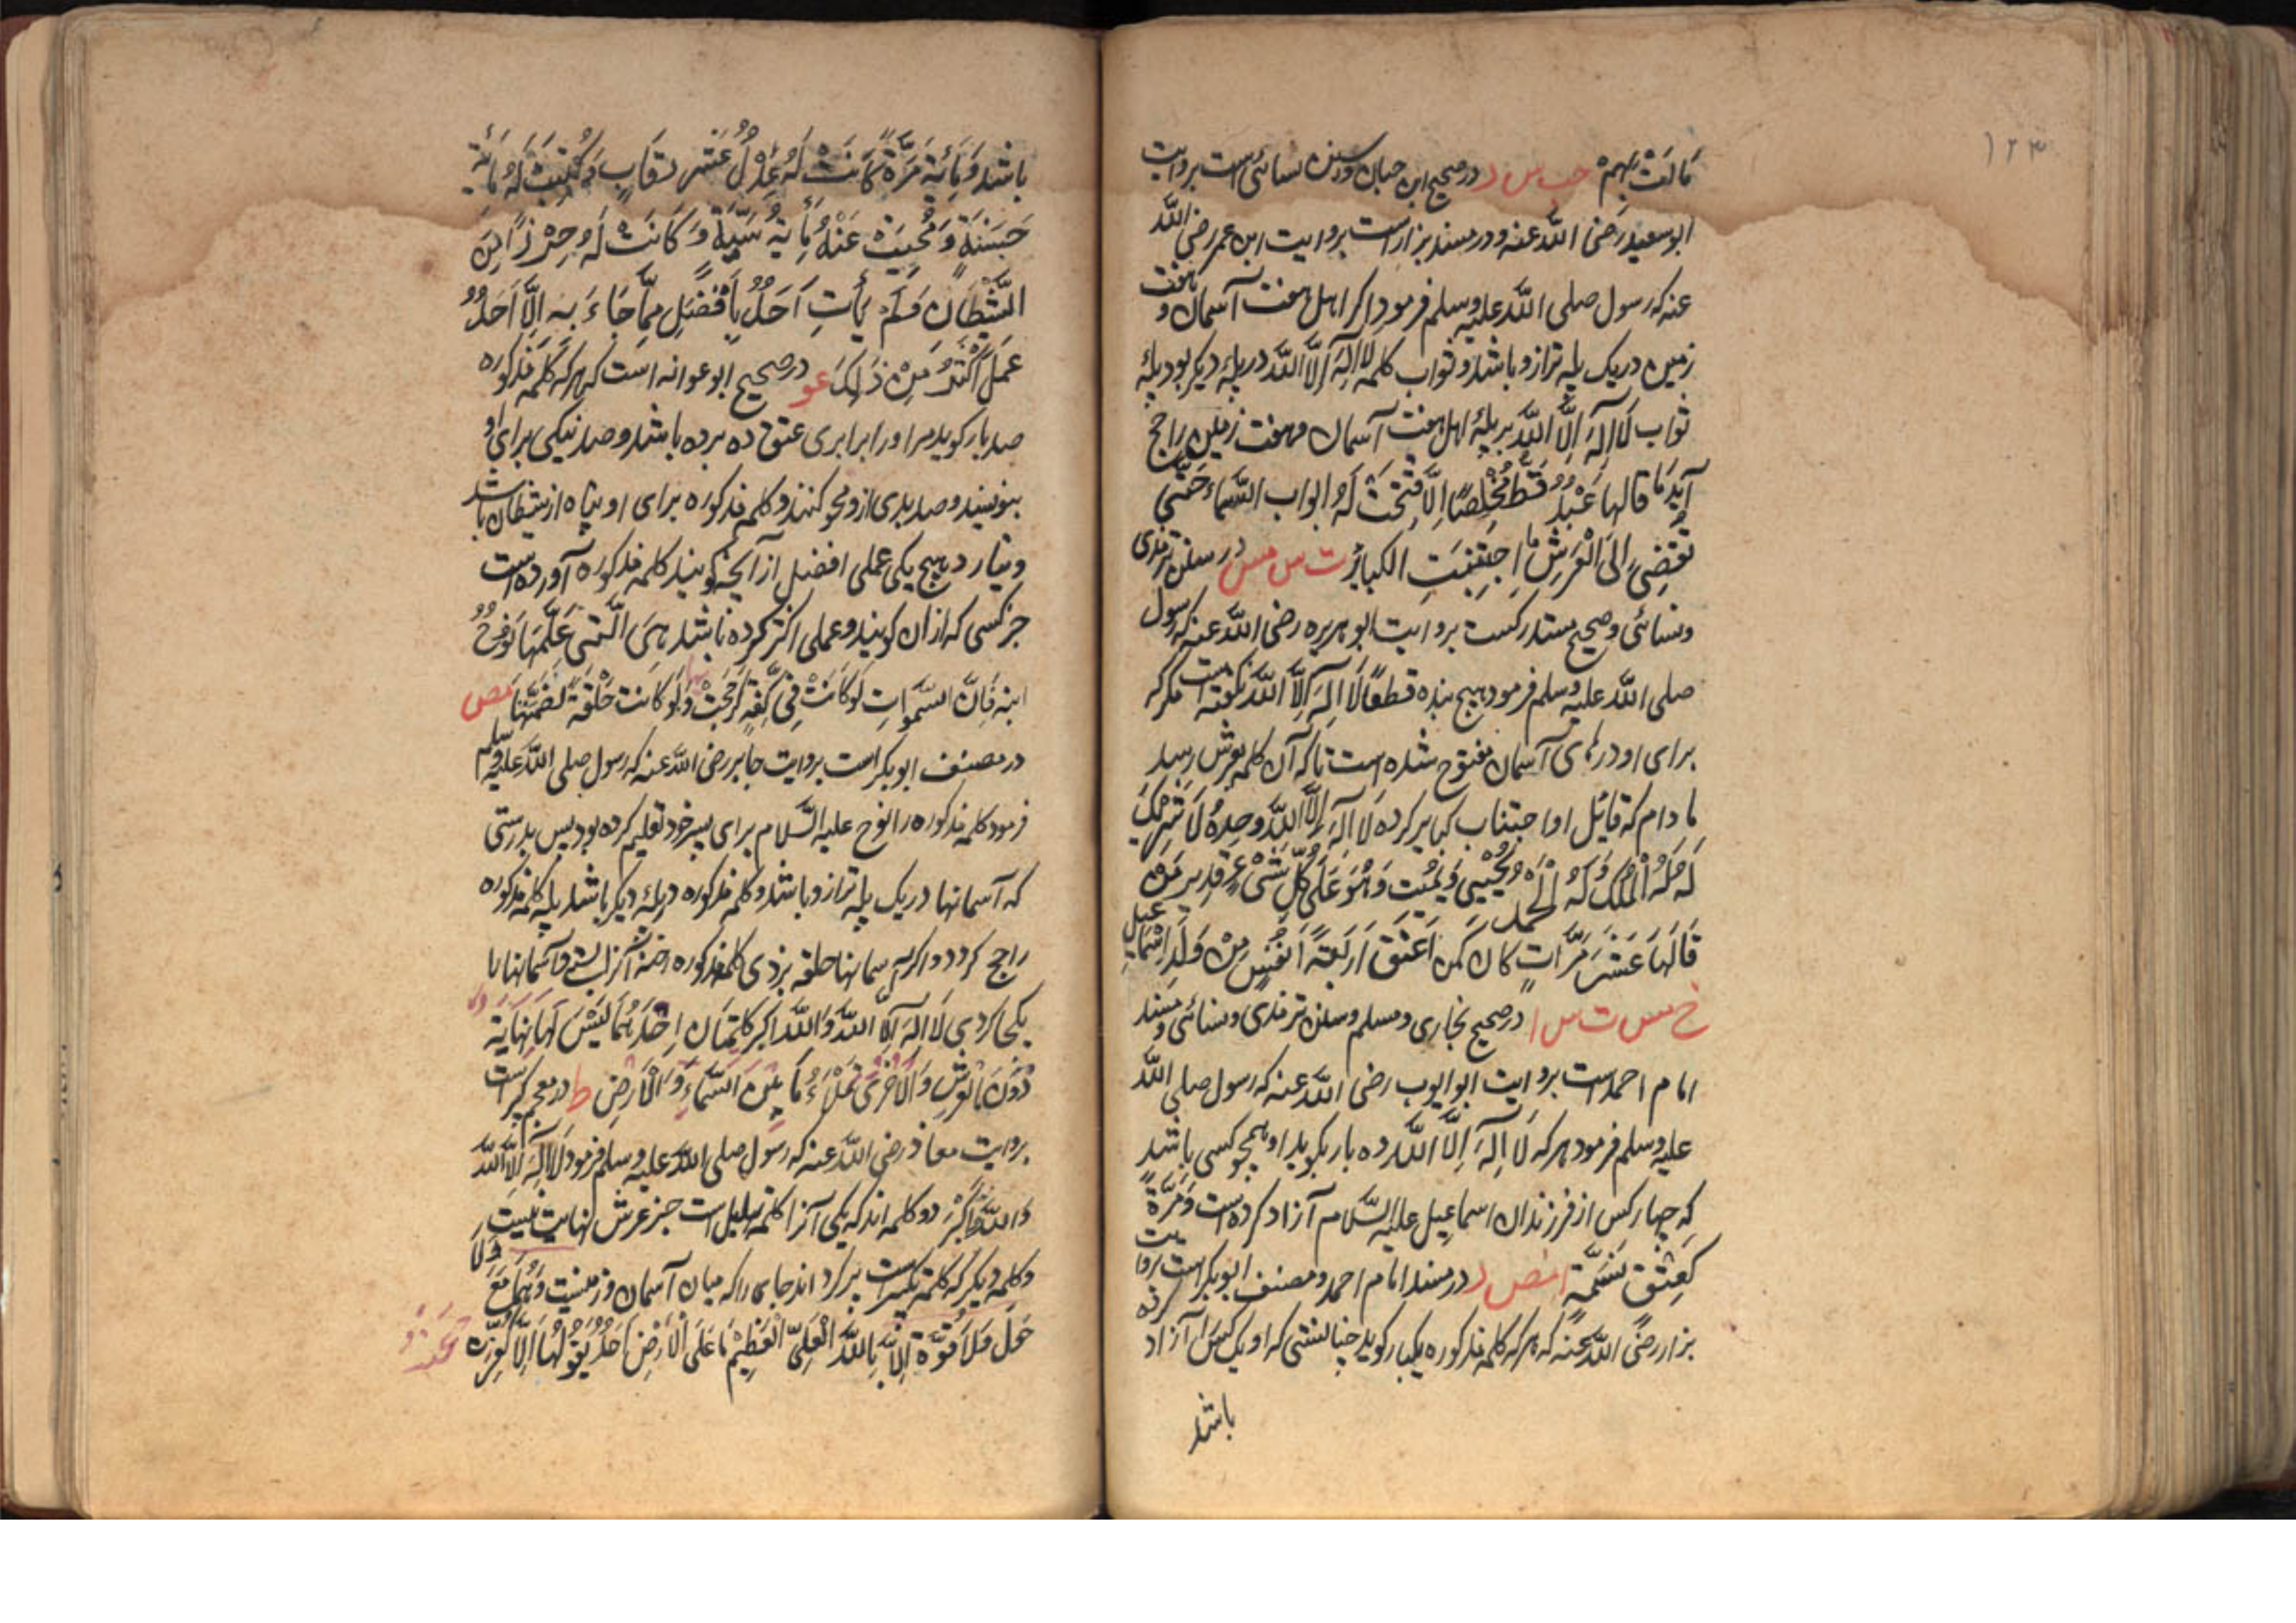 ۱۲۳
مَالَتْ بِهِمْ حب س ر در صحیح ابن حبان و سنن نسائی است بروایت
ابو سعید رضی اللّٰه عنه و در مسند بزار است بروایت ابن عمر رضی اللّٰه
عنه که رسول صلی اللّٰه علیه وسلم فرمود اکر اهل هفت آسمان و هفت
زمین در یک پله ترازو باشد و ثواب کلمهٔ لا اِلٰهَ اِلَّا اللّٰه در پلهٔ دیکر بود پلهٔ
ثواب لَا اِلٰهَ اِلَّا اللّٰه بر پلهٔ اهل هفت آسمان و هفت زمین راجح
آید مَا قالها عَبْدٌ قَطُّ مُخْلِصًا اِلَّا فُتِحَتْ لَهُ ابواب السَّماء حَتّٰی
تُفْضِیَ اِلَی الْعَرْشِ ما اجتُنِبَتِ الکبائرُ ت س مس در سنن ترمذی
و نسائی و صحیح مستدرکست بروایت ابو هریره رضی اللّٰه عنه که رسول
صلی اللّٰه علیه وسلم فرمود هیچ بنده قطعًا لَا اِلٰهَ اِلَّا اللّٰه نکفته است مکر که
برای او درهای آسمان مفتوح شده است تا که آن کلمه بعرش رسد
ما دام که قائل او اجتناب کبایر کرده لَا اِلٰهَ اِلَّا اللّٰه وحدهُ لَا شَرِیکَ
لَهُ لَهُ الْمُلْکُ وَلَهُ الْحَمْدُ یُحْیِی وَیُمِیْت وَهُوَ عَلٰی کُلِّ شَیْءٍ قدیر مَن
قَالَهَا عَشَرَ مَرَّاتٍ کان کمن اَعْتَقَ اَرْبَعَةَ اَنْفُسٍ مِنْ وَلَدِ اِسْمَاعیل
خ مس ت س ا در صحیح بخاری و مسلم و سنن ترمذی و نسائی و مسند
امام احمد است بروایت ابو ایوب رضی اللّٰه عنه که رسول صلی اللّٰه
علیه وسلم فرمود هر که لَا اِلٰهَ اِلَّا اللّٰه ده بار بکوید او همچو کسی باشد
که چهار کس از فرزندان اسماعیل علیه السَّلام آزاد کرده است وَمَرَّةً
کَعِتْقِ نَسَمَةٍ ا مص ر در مسند امام احمد و مصنف ابوبکر است بروایت
بزار رضی اللّٰه عنه که هر که کلمه مذکوره یکبار کوید چنانستی که او یک کس را آزاد کرده
باشد
باشد وَمِائَةَ مَرَّةً کَانَتْ لَهُ عِدْلُ عَشْرِ رِقَابٍ وَکُتِبَتْ لَهُ مِائَة
حَسَنَةٍ وَمُحِیَتْ عَنْهُ مِأَیَةُ سَیِّئَةٍ وَ کَانَتْ لَهُ حِرْزًا مِنَ
الشَّیْطَانِ وَلَمْ یَأْتِ اَحَدٌ بِاَفْضَلِ مِمَّا جَاءَ بِهِ اِلَّا اَحَدٌ
عَمِلَ اَکْثَرُ مِنْ ذٰلِکَ عو در صحیح ابو عوانه است که هر که کلمه مذکوره
صد بار کوید مر او را برابری عتق ده برده باشد و صد نیکی برای او
بنویسند و صد بدی ازو محو کنند و کلمه مذکوره برای او پناه از شیطان باشد
و نیارد هیچ یکی عملی افضل از آنچه کوینده کلمه مذکوره آورده است
جز کسی که از آن کوینده عملی اکثر کرده باشد هِیَ الَّتِی عَلَّمَهَا نُوحٌ
ابنه فَاِنَّ السَّمٰوَاتِ لَوْ کَانَتْ فِی کَفَّةٍ لَرَجَحَتْ بها وَلَو کانت حَلْقَةً لَضَمَّتْهَا مص
در مصنف ابوبکر است بروایت جابر رضی اللّٰه عنه که رسول صلی اللّٰه علیه وسلم
فرمود کلمه مذکوره را نوح علیه السَّلام برای پسر خود تعلیم کرده بود پس بدرستی
که آسمانها در یک پله ترازو باشد و کلمه مذکوره در پلهٔ دیکر باشد پله کلمه مذکوره
راجح کردد و اکر آسمانها حلقه بودی کلمه مذکوره
یکجا کردی لَا اِلٰهَ اِلَّا اللّٰه وَاللّٰه اکبر کَلِمَتَان اِحْدٰهُمَا لَیْسَ لَهَا نِهَایَة
دُوْنَ الْعَرْشِ وَالْاُخْرٰی تَمْلَاءُ مَا بَیْنَ السَّمَاءِ وَالْاَرْضِ ط در معجم کبیر است
بروایت معاذ رضی اللّٰه عنه که رسول صلی اللّٰه علیه وسلم فرمود لَا اِلٰهَ اِلَّا اللّٰه
وَ اللّٰهُ اَکْبَرْ دو کلمه اند که یکی آنرا کلمه تهلیل است جز عرش نهایت نیست
و کلمه دیکر که کلمه تکبیر است پر کرداند جای را که میان آسمان و زمینست وَهُمَا مَعَ وَلَا
حَوْلَ وَلَا قُوَّةَ اِلَّا بِاللّٰهِ الْعَلِیِّ الْعَظِیْمِ مَا عَلَی الْاَرْضِ اَحَدٌ یَقُوْلُهَا اِلَّا کُفِّرَتْ